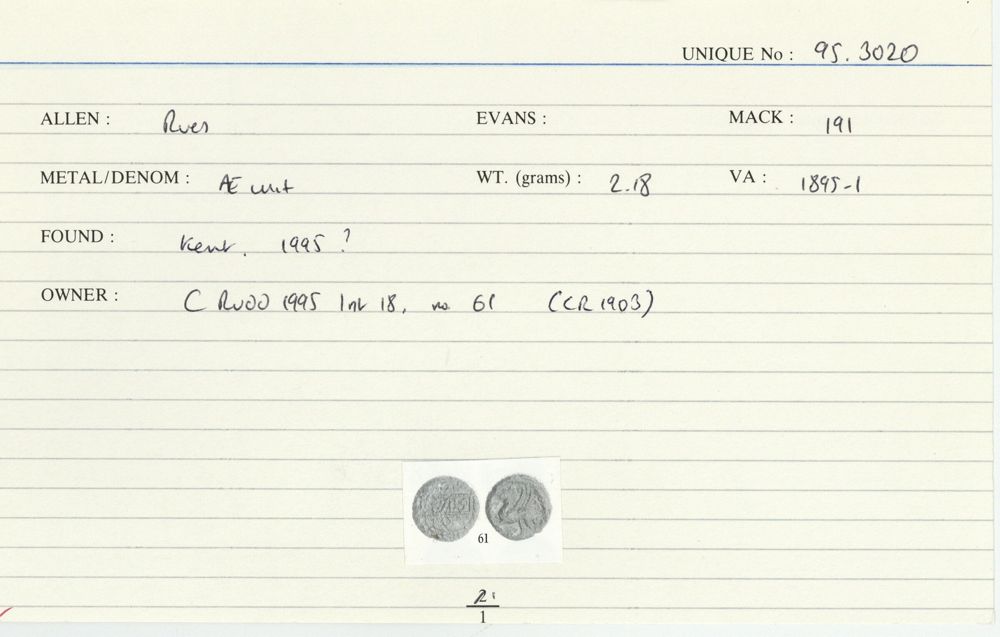 UNIQUE No : 95.3020
ALLEN : Rues EVANS : MACK : 191
METAL/DENOM : Æ unit WT. (grams) : 2.18 VA : 1895-1
FOUND : Kent. 1995 ?
OWNER : C RUDD 1995 list 18, no 61 (CR 1903)
61
1